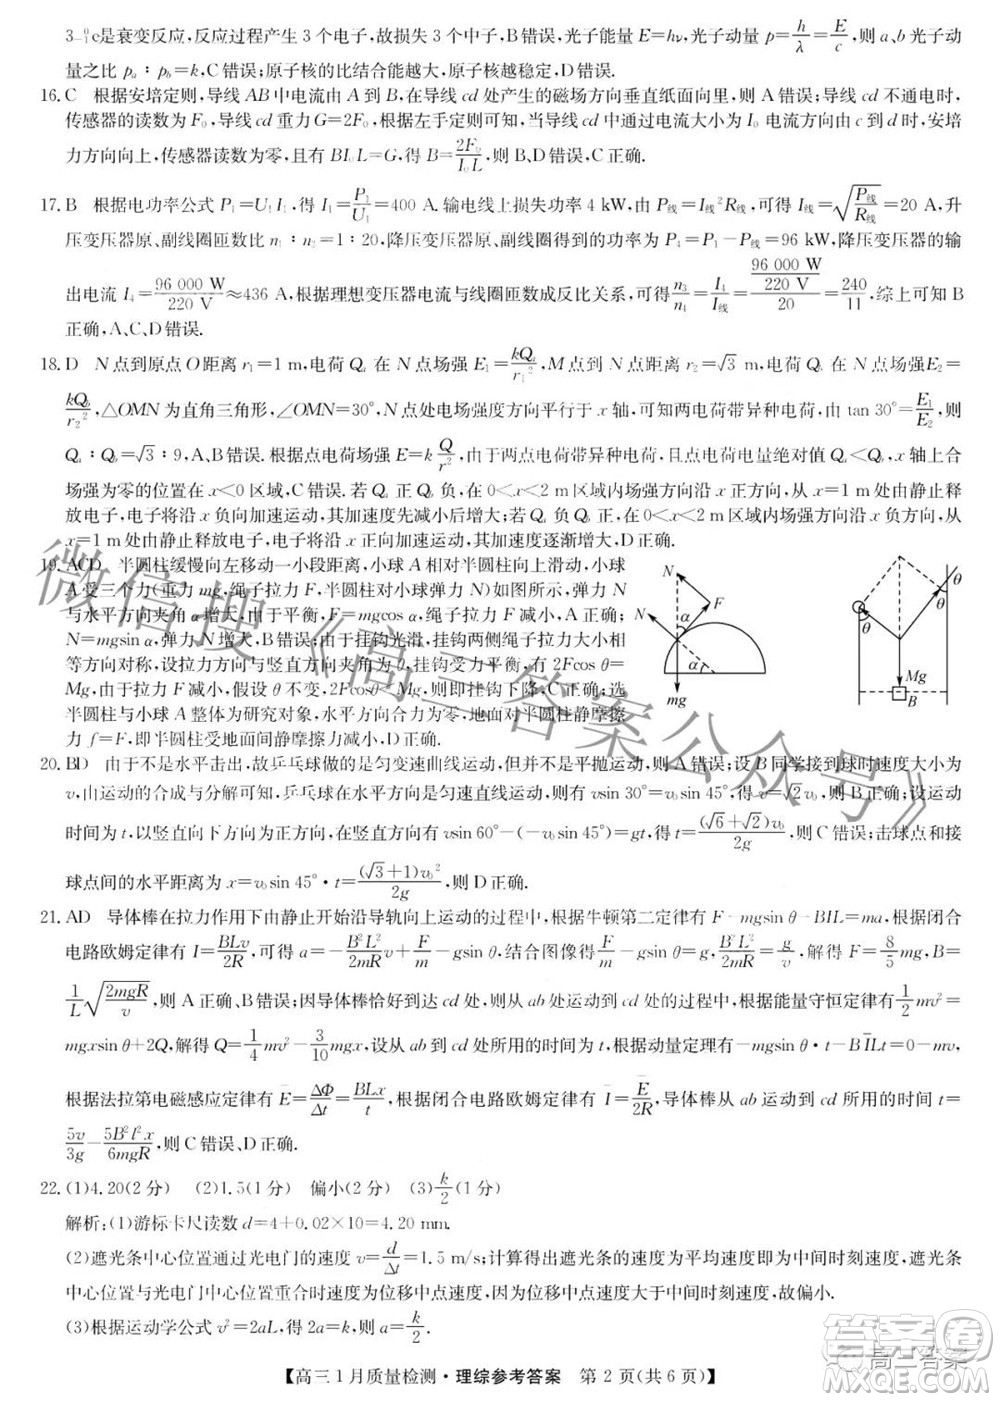 3₋₁⁰e是衰变反应,反应过程产生 3 个电子,故损失 3 个中子,B错误,光子能量 E=hν,光子动量 p=h/λ=E/c,则 a、b 光子动
量之比 pₐ∶p_b=k,C错误;原子核的比结合能越大,原子核越稳定,D错误.
16. C 根据安培定则,导线 AB 中电流由 A 到 B,在导线 cd 处产生的磁场方向垂直纸面向里,则 A 错误;导线 cd 不通电时,
传感器的读数为 F₀,导线 cd 重力 G=2F₀,根据左手定则可知,当导线 cd 中通过电流大小为 I₀ 电流方向由 c 到 d 时,安培
力方向向上,传感器读数为零,且有 BI₀L=G,得 B=2F₀/(I₀L),则B、D错误,C正确.
17. B 根据电功率公式 P₁=U₁I₁,得 I₁=P₁/U₁=400 A.输电线上损失功率 4 kW,由 P线=I线²R线,可得 I线=√(P线/R线)=20 A,升
压变压器原、副线圈匝数比 n₁∶n₂=1∶20,降压变压器原线圈得到的功率为 P₄=P₁-P线=96 kW,降压变压器的输
出电流 I₄=96 000 W/220 V≈436 A,根据理想变压器电流与线圈匝数成反比关系,可得n₃/n₄=I₄/I线=(96 000 W/220 V)/20=240/11,综上可知 B
正确,A、C、D错误.
18. D N 点到原点 O 距离 r₁=1 m,电荷 Qₐ 在 N 点场强 E₁=kQₐ/r₁²,M 点到 N 点距离 r₂=√3 m,电荷 Q_b 在 N 点场强E₂=
kQ_b/r₂²,△OMN 为直角三角形,∠OMN=30°,N 点处电场强度方向平行于 x 轴,可知两电荷带异种电荷,由 tan 30°=E₁/E₂,则
Qₐ∶Q_b=√3∶9,A、B错误.根据点电荷场强 E=kQ/r²,由于两点电荷带异种电荷,且点电荷电荷量绝对值 Qₐ<Q_b,x 轴上合
场强为零的位置在 x<0 区域,C错误.若 Qₐ 正 Q_b 负,在 0<x<2 m 区域内场强方向沿 x 正方向,从 x=1 m 处由静止释
放电子,电子将沿 x 负向加速运动,其加速度先减小后增大;若 Qₐ 负 Q_b 正,在 0<x<2 m 区域内场强方向沿 x 负方向,从
x=1 m 处由静止释放电子,其加速度逐渐增大,D正确.
19. ACD 半圆柱缓慢向左移动一小段距离,小球 A 相对半圆柱向上滑动,小球
A 受三个力(重力、绳子拉力、半圆柱对小球弹力)如图所示,弹力 N
与水平方向夹角 α 增大,由于平衡,F=mgcos α,绳子拉力 F 减小,A正确;
N=mgsin α,弹力 N 增大,B错误;由于挂钩光滑,挂钩两侧绳子拉力大小相
等方向对称,设拉力方向与竖直方向的夹角为 θ,挂钩受力平衡,有 2Fcos θ=
Mg,由于拉力 F 减小,则 2Fcos θ<Mg,即释放后挂钩下降,C正确;选
半圆柱与小球 A 整体为研究对象,水平方向合力为零,地面对半圆柱静摩擦
力 f=F,即半圆柱受地面间静摩擦力减小,D正确.
N
F
α
α
mg
θ
θ
θ
Mg
B
20. BD 由于不是水平击出,故乒乓球做的是匀变速曲线运动,但并不是平抛运动,则 A 错误;设 B 同学接到球时速度大小为
v,由运动的合成与分解可知,乒乓球在水平方向是匀速直线运动,则有 vsin 30°=v₀sin 45°,得 v=√2v₀,则B正确;设运动
时间为 t,以竖直向下方向为正方向,在竖直方向有 vsin 60°-(-v₀sin 45°)=gt,得 t=(√6+√2)v₀/2g,则 C 错误;击球点和接
球点间的水平距离为 x=v₀sin 45°·t=(√3+1)v₀²/2g,则 D 正确.
21. AD 导体棒在拉力作用下由静止开始沿导轨向上运动的过程中,根据牛顿第二定律有 F-mgsin θ-BIL=ma,根据闭合
电路欧姆定律有 I=BLv/2R,可得 a=-B²L²/2mR v+F/m-gsin θ,结合图像得F/m-gsin θ=g,B²L²/2mR=g/v,解得 F=8/5 mg,B=
1/L √(2mgR/v),则 A 正确、B错误;因导体棒恰好到达 cd 处,则从 ab 处运动到 cd 处的过程中,根据能量守恒定律有1/2 mv²=
mgxsin θ+2Q,得 Q=1/4 mv²-3/10 mgx,设从 ab 处到 cd 处所用的时间为 t,根据动量定理有-mgsin θ·t-BĪLt=0-mv,
根据法拉第电磁感应定律有 Ē=ΔΦ/Δt=BLx/t,根据闭合电路欧姆定律有 Ī=Ē/2R,导体棒从 ab 运动到 cd 所用的时间 t=
5v/3g-5B²l²x/6mgR,则 C错误、D正确.
22. (1)4.20(2分) (2)1.5(1分) 偏小(2分) (3)k/2(1分)
解析:(1)游标卡尺读数 d=4+0.02×10=4.20 mm.
(2)遮光条中心位置通过光电门的速度 v=d/Δt=1.5 m/s;计算得出遮光条的速度为平均速度即为中间时刻速度,遮光条
中心位置与光电门中心位置重合时速度为位移中点速度,位移中点速度大于中间时刻速度,故测量值偏小.
(3)根据运动学公式 v²=2aL,得 2a=k,故 a=k/2.
【高三1月质量检测·理综参考答案 第 2 页(共 6 页)】
微信搜《高三答案公众号》
高三答案